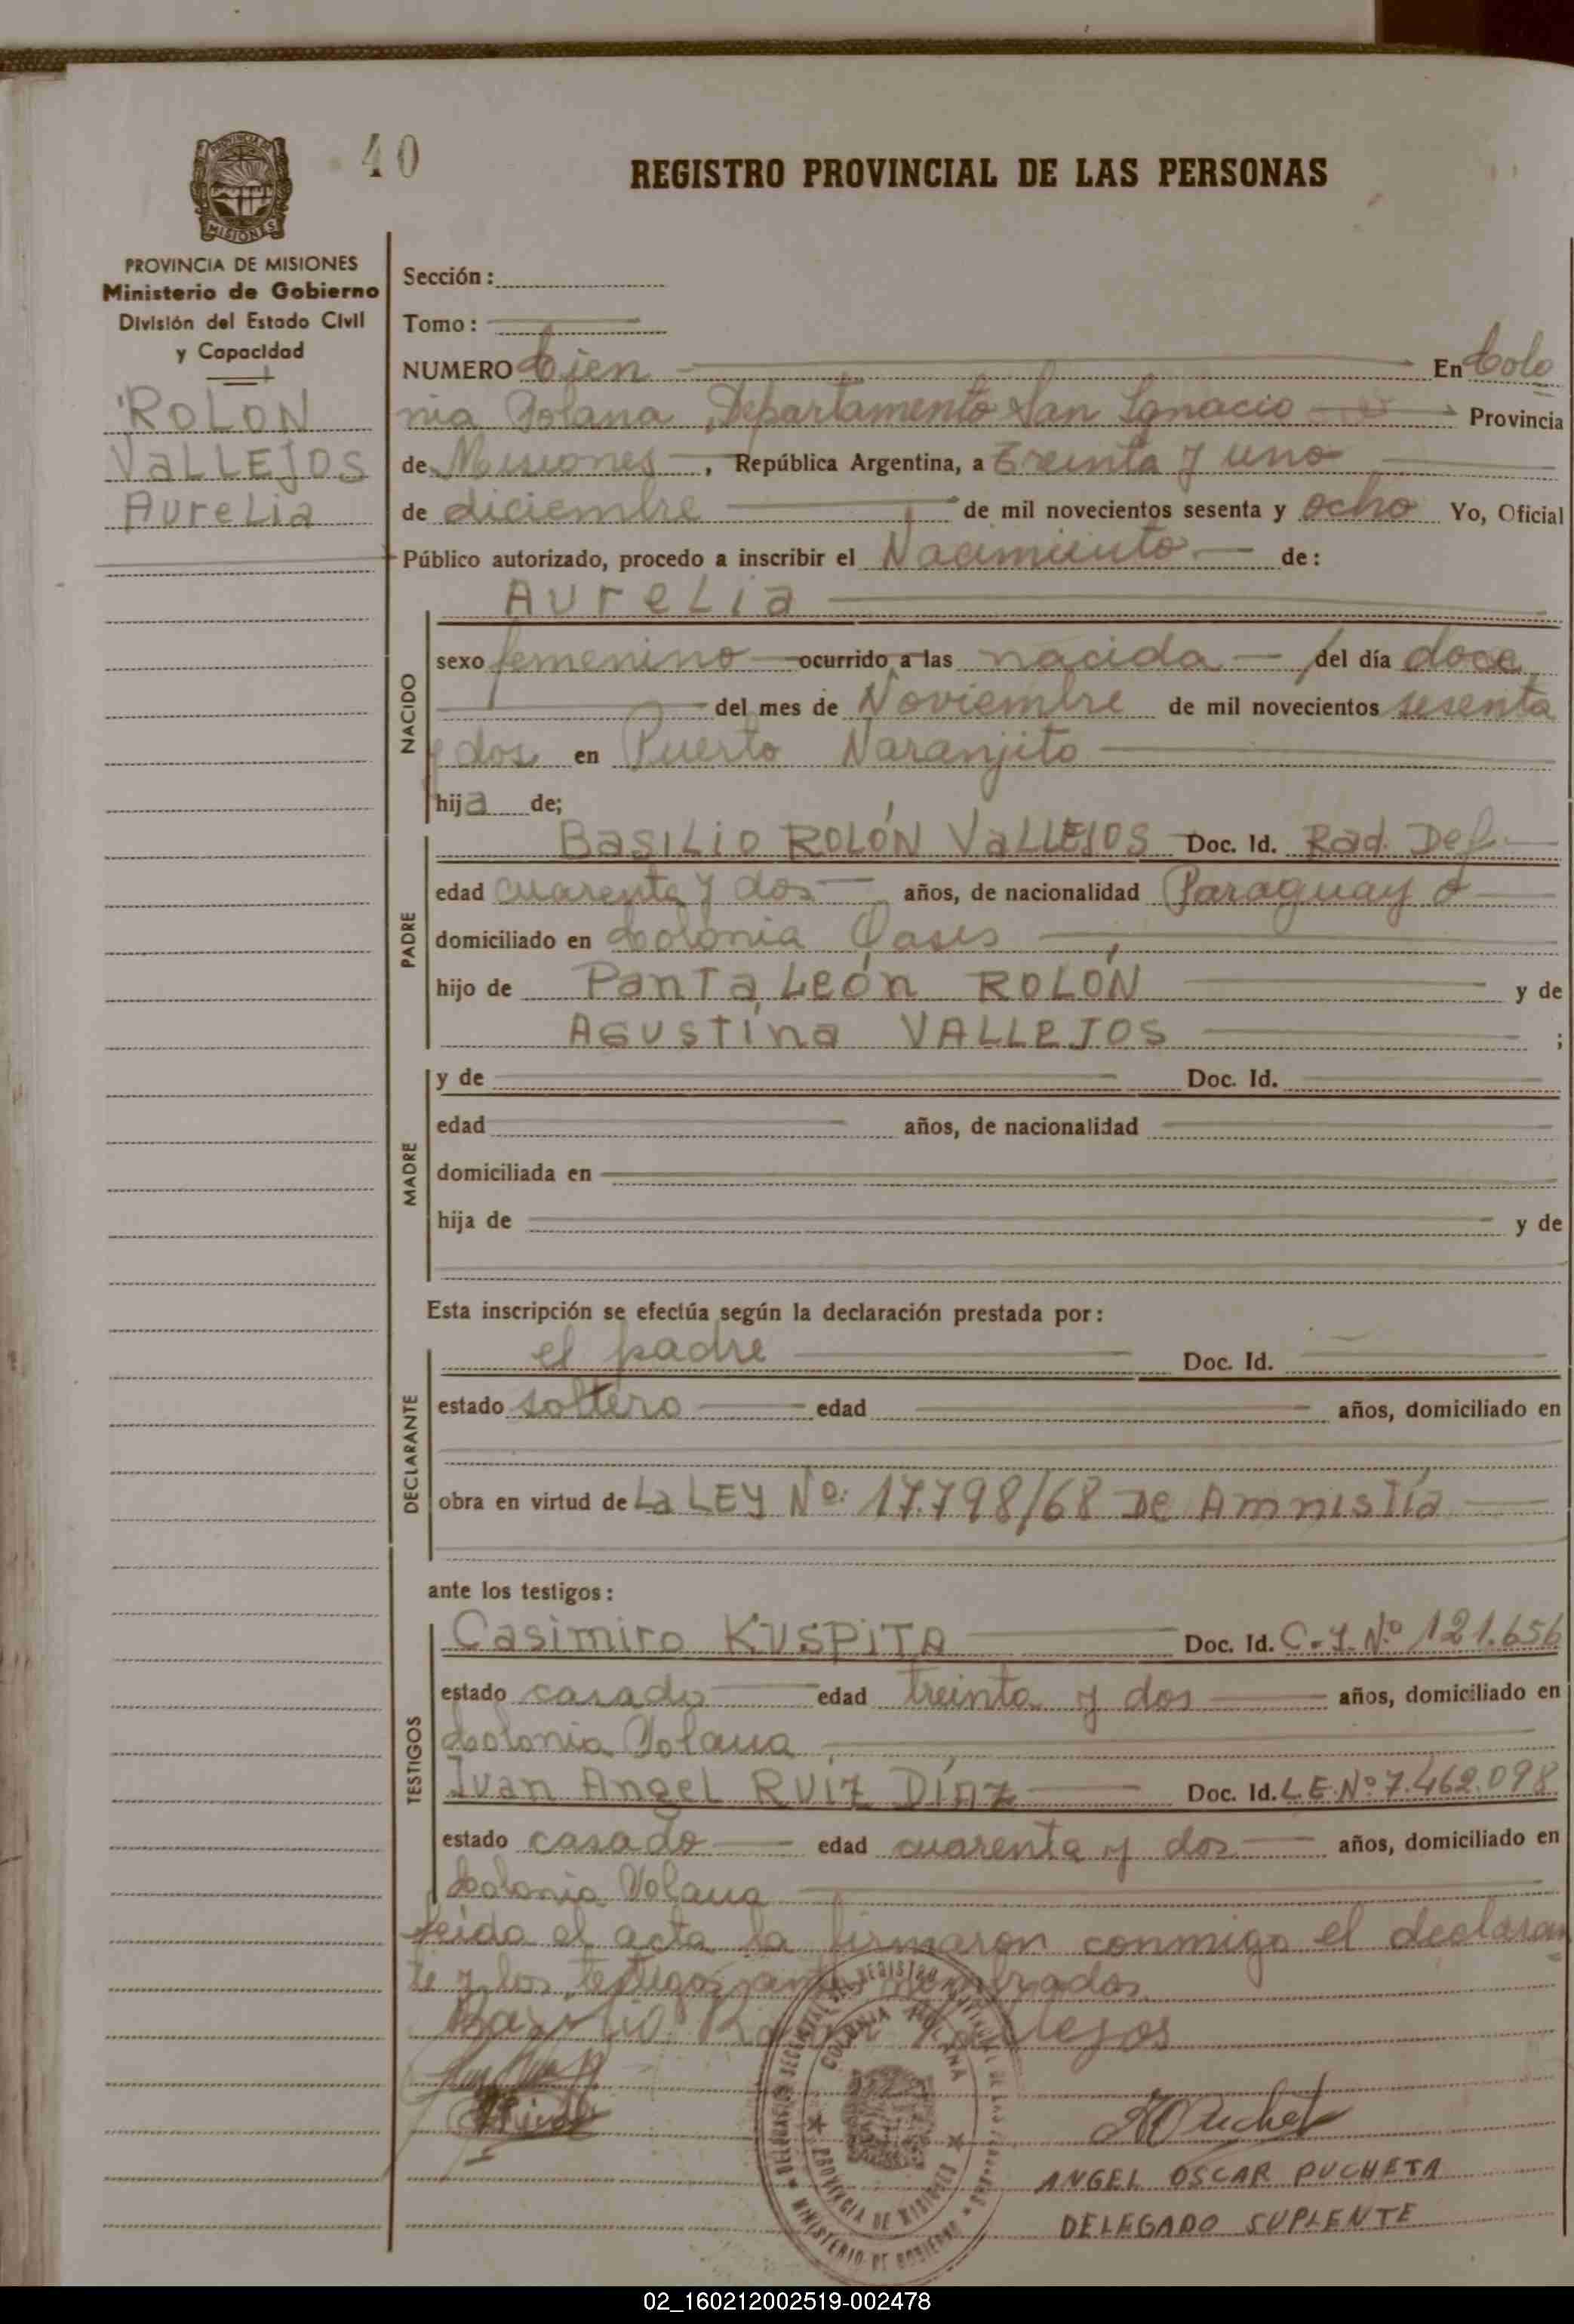 40
REGISTRO PROVINCIAL DE LAS PERSONAS
PROVINCIA DE MISIONES
MISIONES
PROVINCIA DE MISIONES
Ministerio de Gobierno
División del Estado Civil
y Capacidad
ROLON
VaLLEJOS
AureLia
Sección:
Tomo:
NUMERO Cien En Colo
nia Polana, Departamento San Ignacio Provincia
de Misiones, República Argentina, a treinta y uno
de diciembre de mil novecientos sesenta y ocho Yo, Oficial
Público autorizado, procedo a inscribir el Nacimiento de:
AureLia
NACIDO
sexo femenino ocurrido a las nacida del día doce
del mes de Noviembre de mil novecientos sesenta
y dos en Puerto Naranjito
hija de;
PADRE
BasiLio ROLÓN VaLLEJOS Doc. Id. Rad. Def.
edad cuarenta y dos años, de nacionalidad Paraguayo
domiciliado en Colonia Oasis
hijo de PanTaLeón ROLÓN y de
AGUSTína VALLEJOS ;
MADRE
y de Doc. Id.
edad años, de nacionalidad
domiciliada en
hija de y de
Esta inscripción se efectúa según la declaración prestada por:
DECLARANTE
el padre Doc. Id.
estado soltero edad años, domiciliado en
obra en virtud de La LEY Nº: 17.798/68 De AmnisTía
ante los testigos:
TESTIGOS
Casimiro KUSPITA Doc. Id. C.I. Nº 121.656
estado casado edad treinta y dos años, domiciliado en
Colonia Polana
Juan AngeL RUIZ DÍAZ Doc. Id. L.E. Nº 7.462.098
estado casado edad cuarenta y dos años, domiciliado en
Colonia Polana
Leída el acta la firmaron conmigo el declaran
te y los testigos antes nombrados.
Basilio Rolon Vallejos
COLONIA POLANA
PROVINCIA DE MISIONES
MINISTERIO DE GOBIERNO
AOPuchet
ANGEL OSCAR PUCHETA
DELEGADO SUPLENTE
02_160212002519-002478